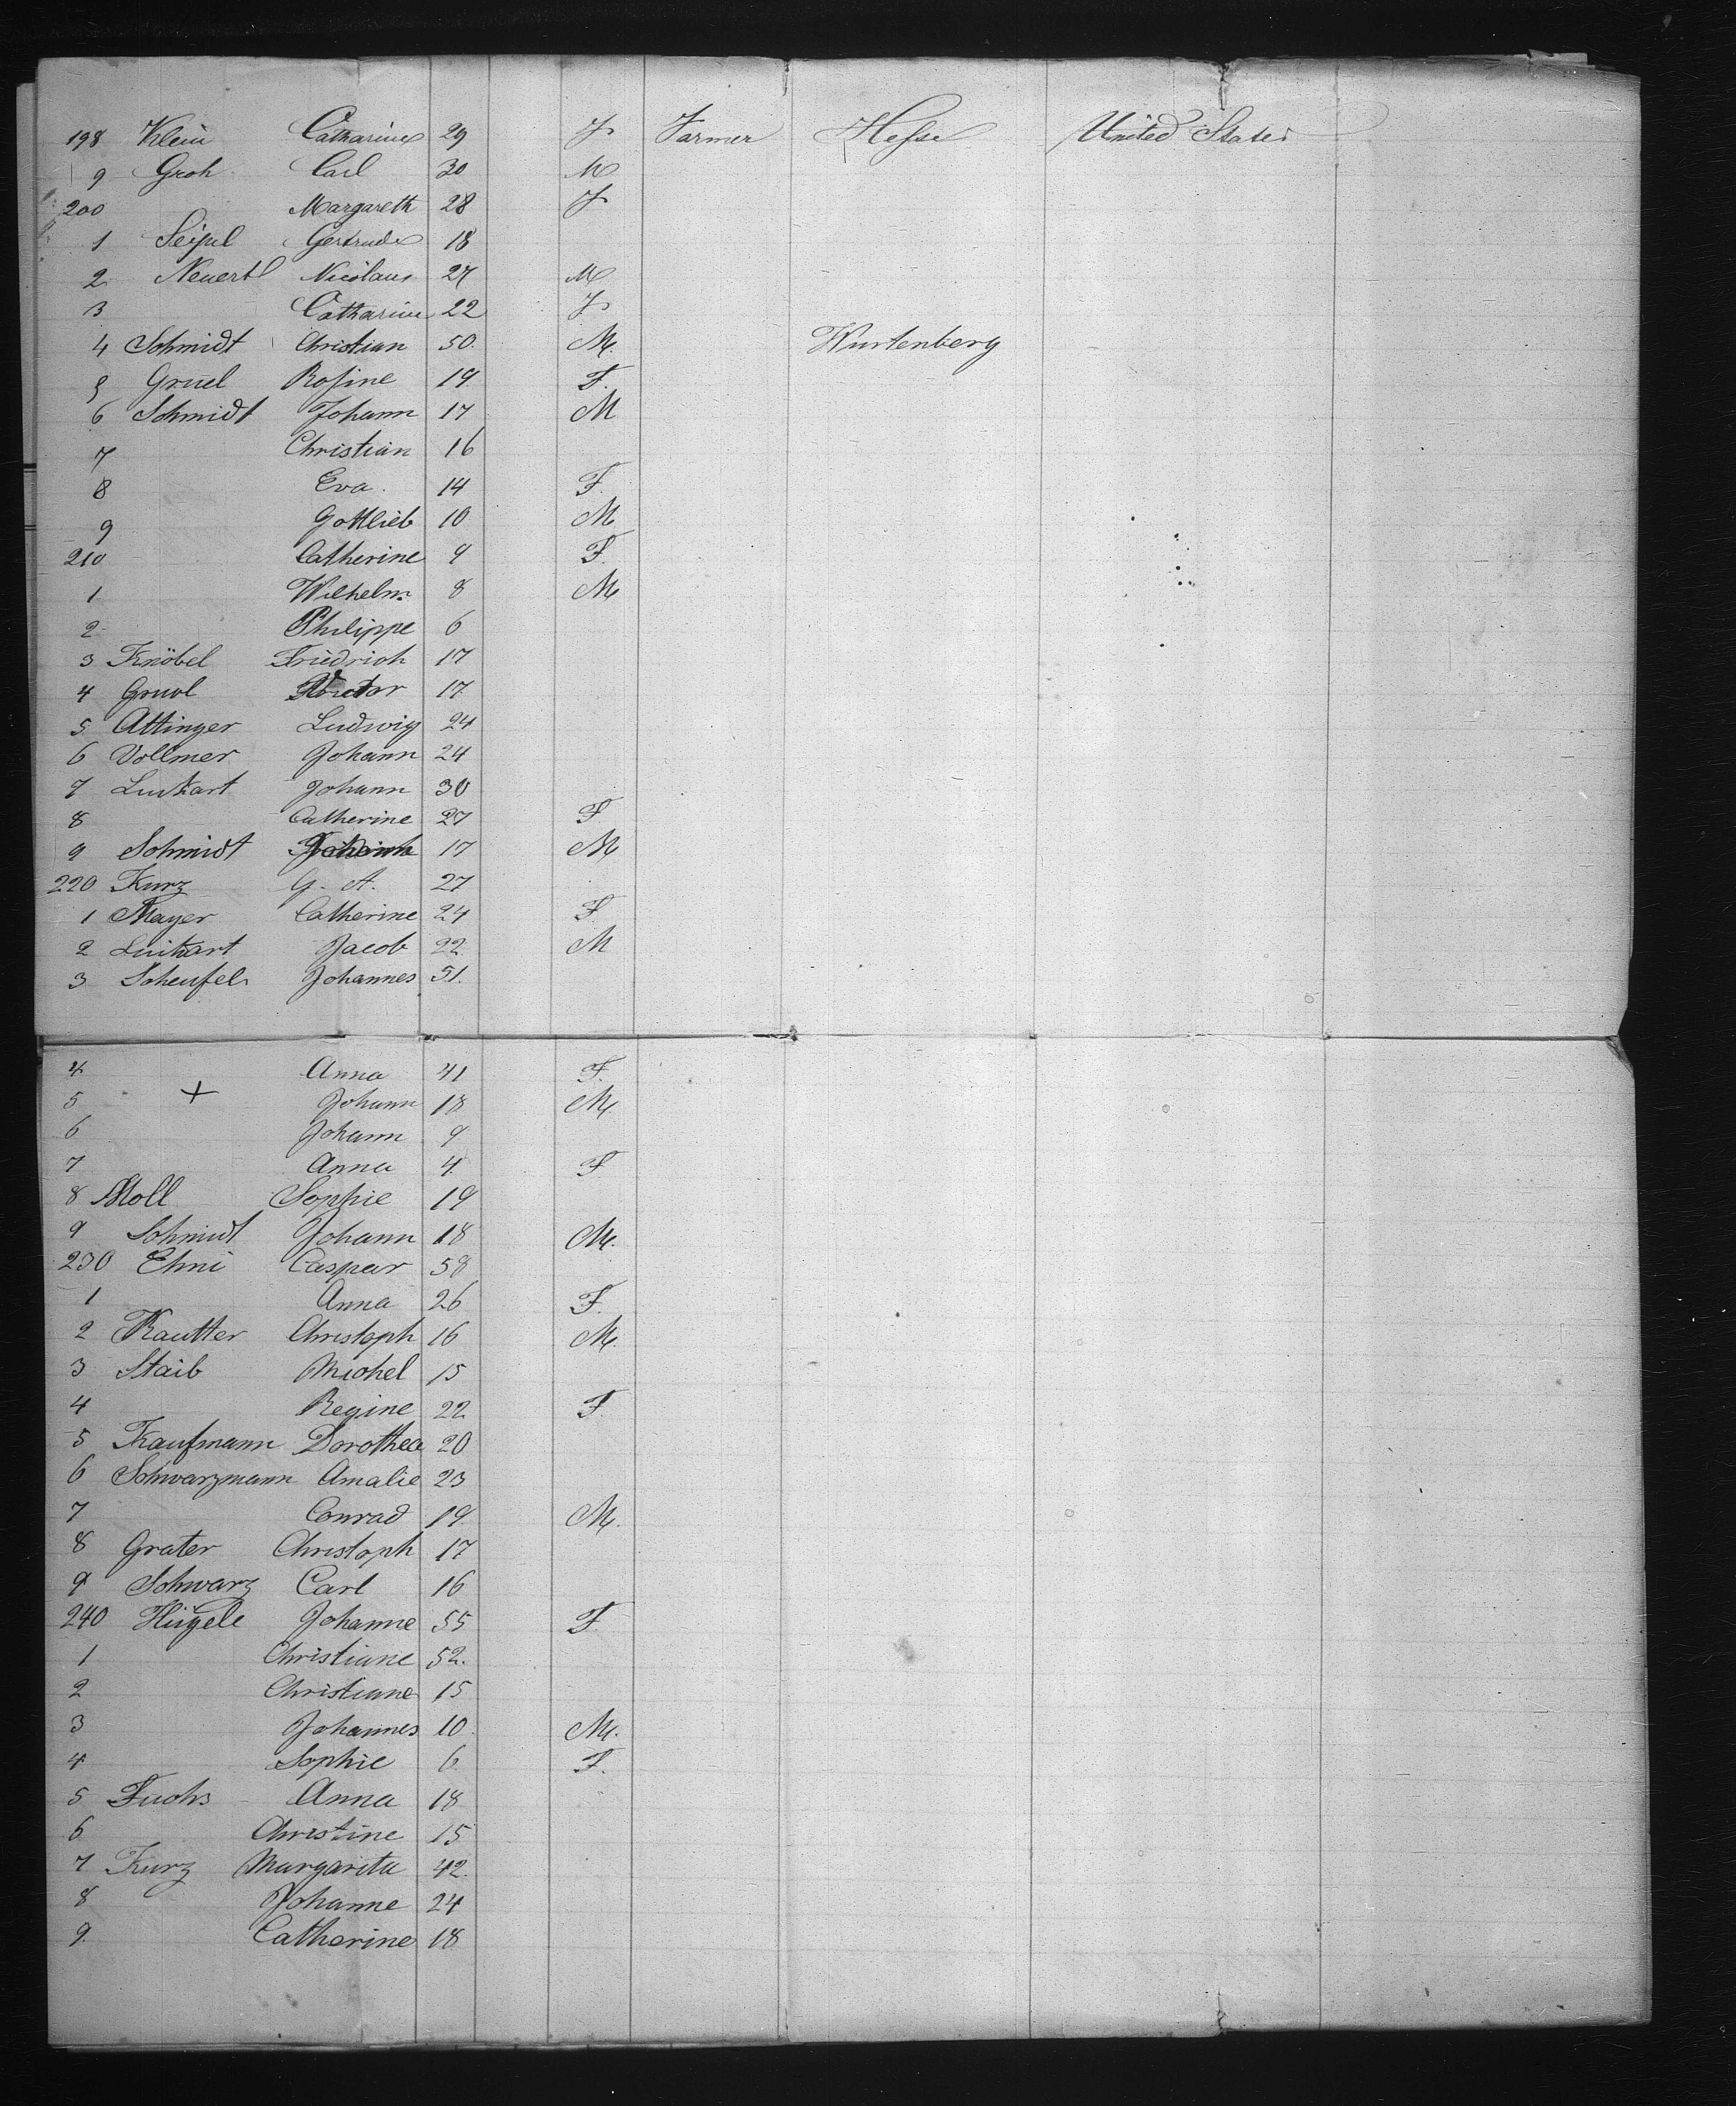 198 Klein Catharine 29 F Farmer Hesse United States
9 Groh Carl 30 M
200 Margareth 28 F
1 Seipel Gertrude 18
2 Neuert Nicolaus 27 M
3 Catharine 22 F
4 Schmidt Christian 50. M. Wurtenberg
5 Gruel Rosine 19 F.
6 Schmidt Johann 17 M
7 Christian 16
8 Eva. 14 F.
9 Gottlieb 10 M
210 Catherine 9 F.
1 Wilhelm 8 M
2 Philippe 6
3 Knöbel Friedrich 17
4 Victor 17
5 Attinger Ludwig 24
6 Vollmer Johann 24
7 Johann 30
8 Catherine 27 F
9 Schmidt 17 M
220 Kurz G. A. 27
1 Mayer Catherine 24 F
2 Jacob 22 M
3 Scheufele Johannes 51.
4 Anna 41 F.
5 + Johann 18 M
6 Johann 9
7 Anna 4 F
8 Moll Sophie 19
9 Schmidt Johann 18 M.
230 Ehni Caspar 58
1 Anna 26 F.
2 Rautter Christoph 16 M.
3 Staib Michel 15
4 Regine 22 F
5 Kaufmann Dorothea 20
6 Schwarzmann Amalie 23
7 Conrad 19 M.
8 Grater Christoph 17
9 Schwarz Carl 16
240 Hügele Johanne 55 F.
1 Christiane 52.
2 Christiane 15
3 Johannes 10 M.
4 Sophie 6 F.
5 Fuchs Anna 18
6 Christine 15
7 Kurz Margarita 42.
8 Johanne 24
9. Catherine 18